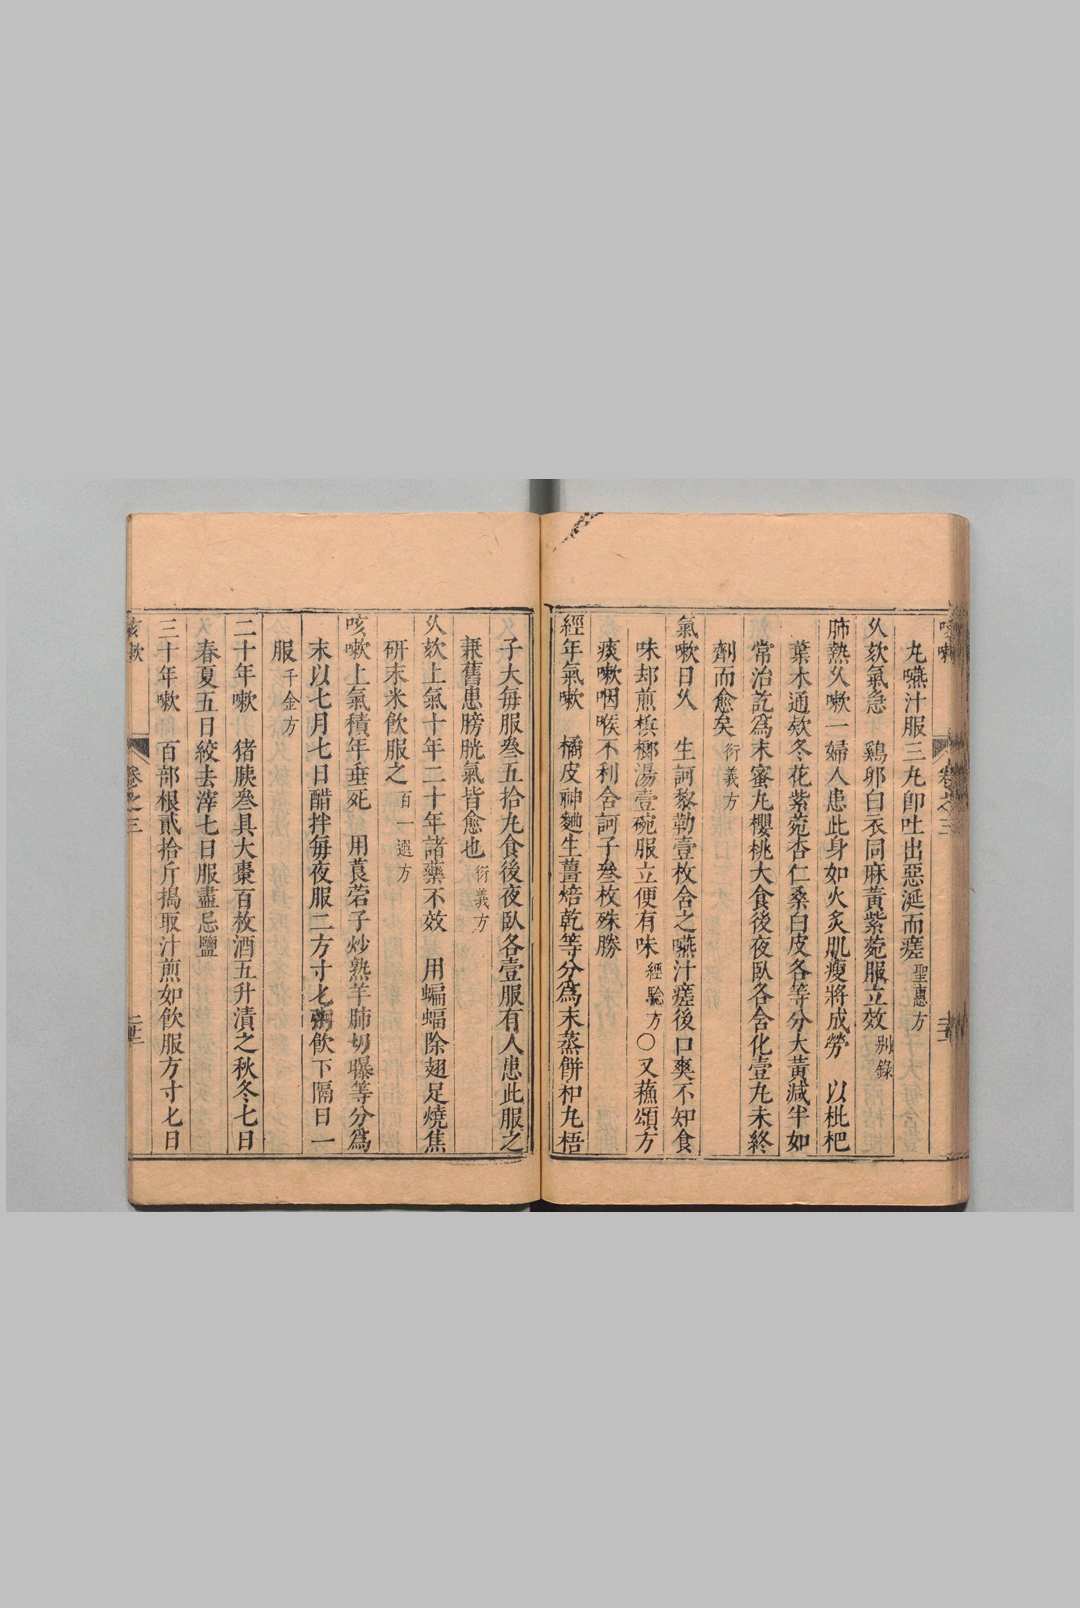 丸嚥汁服三丸卽吐出惡涎而瘥聖惠方
乆欬氣急　鷄卵白衣同麻黃紫菀服立效別錄
肺熱乆嗽一婦人患此身如火炙肌瘦將成勞　以枇杷
葉木通欬冬花紫菀杏仁桑白皮各等分大黃減半如
常治訖爲末蜜丸櫻桃大食後夜臥各含化壹丸未終
劑而愈矣衍義方
氣嗽日乆　生訶黎勒壹枚含之嚥汁瘥後口爽不知食
味却煎檳榔湯壹碗服立便有味經驗方○又蘓頌方
痰嗽咽喉不利含訶子叄枚殊勝
經年氣嗽　橘皮神麯生薑焙乾等分爲末蒸餅和丸梧
子大每服叄五拾丸食後夜臥各壹服有人患此服之
兼舊患膀胱氣皆愈也衍義方
乆欬上氣十年二十年諸藥不效　用蝙蝠除翅足燒焦
研末米飲服之百一選方
咳嗽上氣積年垂死　用莨菪子炒熟羊肺切曝等分爲
末以七月七日醋拌每夜服二方寸匕粥飲下隔日一
服千金方
二十年嗽　猪胰叄具大棗百枚酒五升漬之秋冬七日
春夏五日絞去滓七日服盡忌鹽
三十年嗽　百部根貳拾斤搗取汁煎如飲服方寸匕日
咳嗽　卷之三